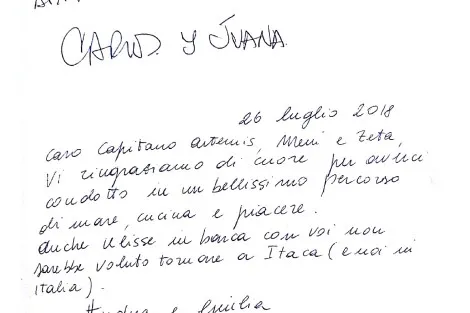 CARLOS Y JUANA.
26 luglio 2018
caro Capitano Artemis, Meni e Zeta,
Vi ringraziamo di cuore per averci
condotto in un bellissimo percorso
di mare, cucina e piacere.
Anche Ulisse in barca con voi non
sarebbe voluto tornare a Itaca (e noi in
Italia).
Andrea e Emilia